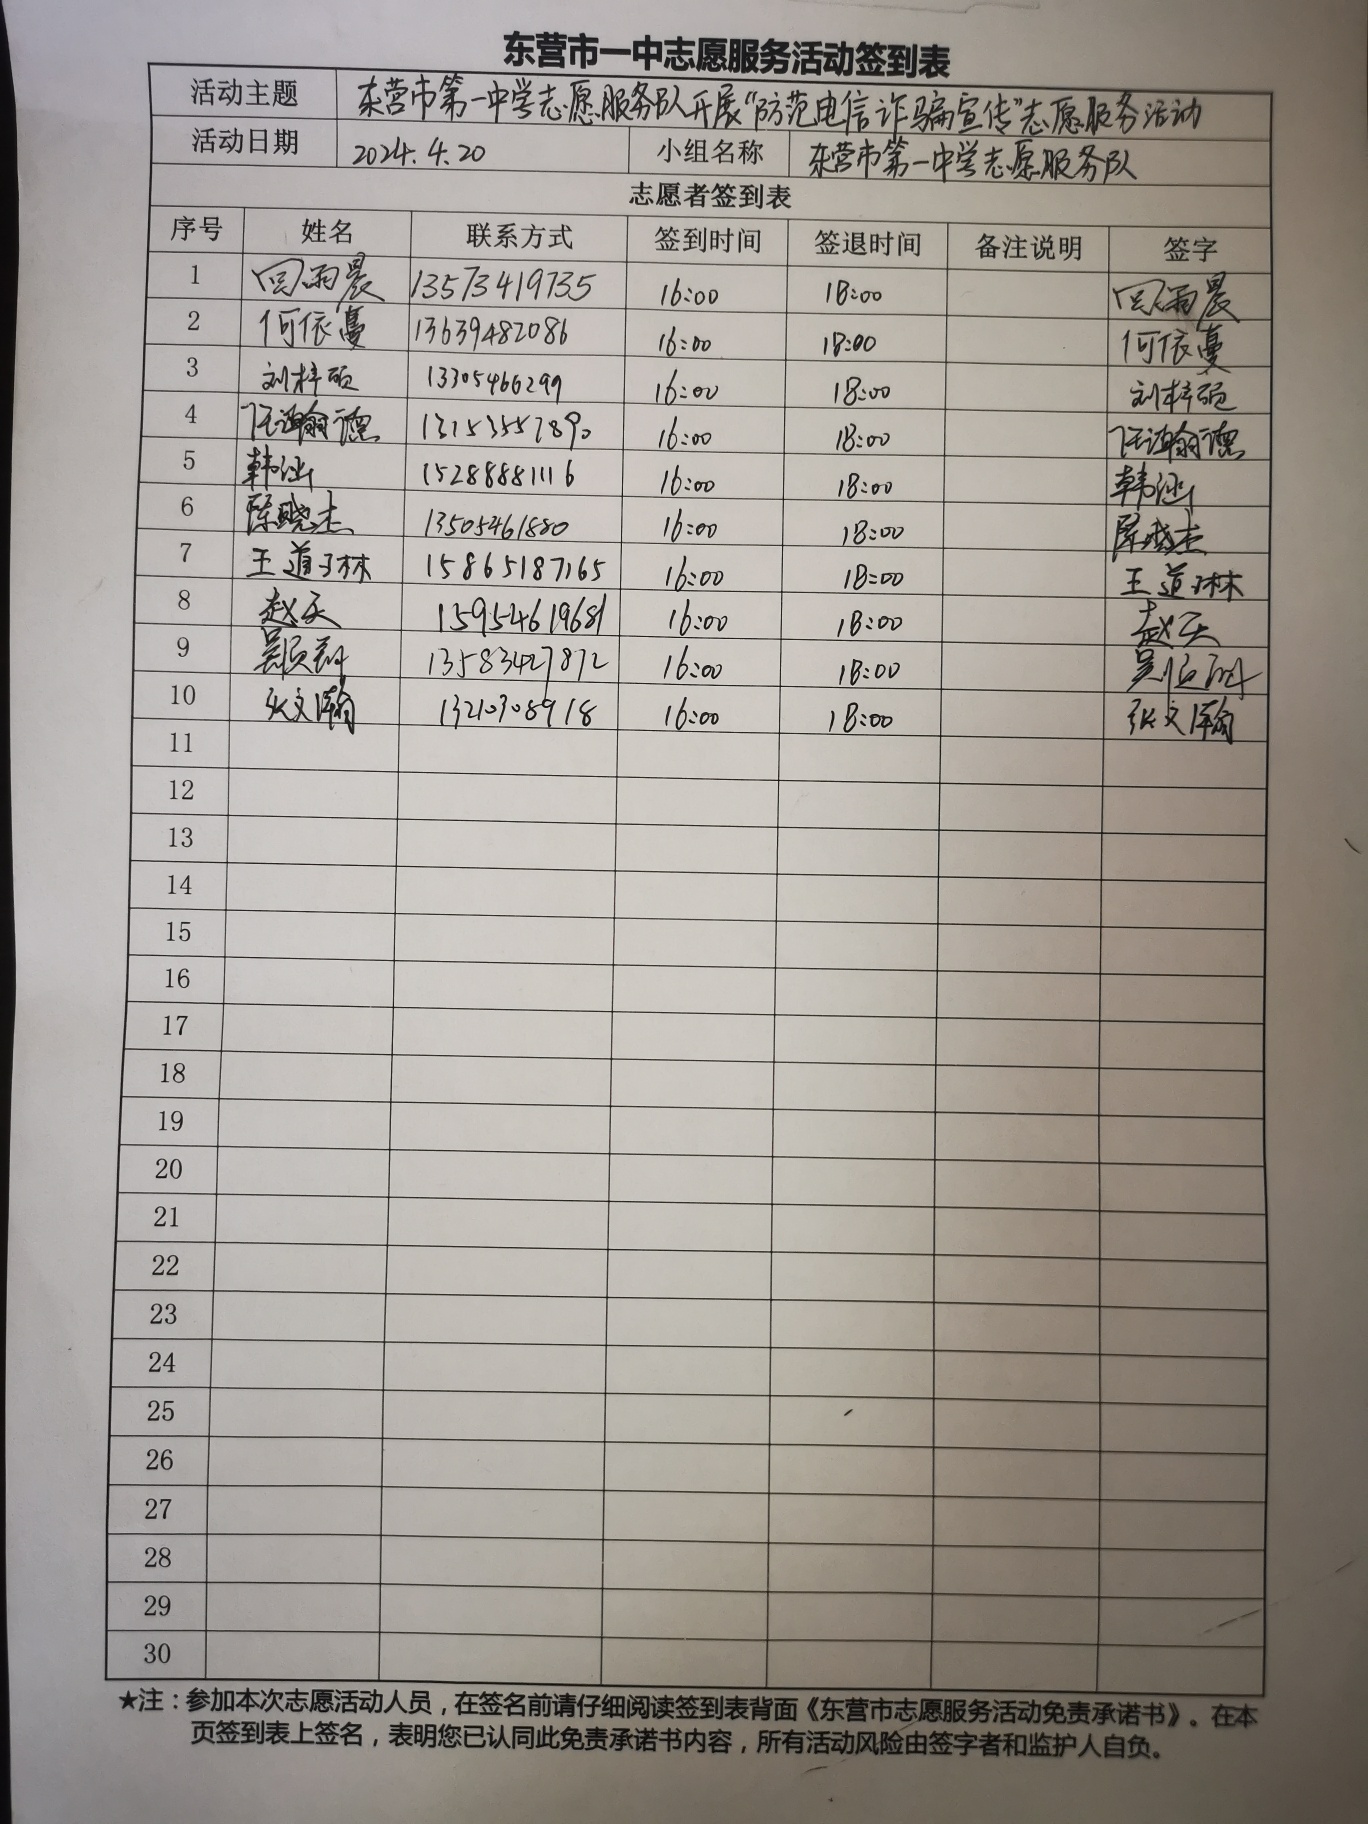 东营市一中志愿服务活动签到表
活动主题 东营市第一中学志愿服务队开展“防范电信诈骗宣传”志愿服务活动
活动日期 2024.4.20 小组名称 东营市第一中学志愿服务队
志愿者签到表
序号 姓名 联系方式 签到时间 签退时间 备注说明 签字
1 雨晨 13573419735 16:00 18:00 雨晨
2 何依蔓 13639482086 16:00 18:00 何依蔓
3 刘梓硕 13305466299 16:00 18:00 刘梓硕
4 任瀚德 13153557890 16:00 18:00 任瀚德
5 韩涵 15288881116 16:00 18:00 韩涵
6 陈晓杰 13505461880 16:00 18:00 陈晓杰
7 王道琳 15865187165 16:00 18:00 王道琳
8 赵天 15954619681 16:00 18:00 赵天
9 吴 13583427872 16:00 18:00 吴
10 张文瀚 13210308918 16:00 18:00 张文瀚
11
12
13
14
15
16
17
18
19
20
21
22
23
24
25
26
27
28
29
30
★注：参加本次志愿活动人员，在签名前请仔细阅读签到表背面《东营市志愿服务活动免责承诺书》。在本
页签到表上签名，表明您已认同此免责承诺书内容，所有活动风险由签字者和监护人自负。